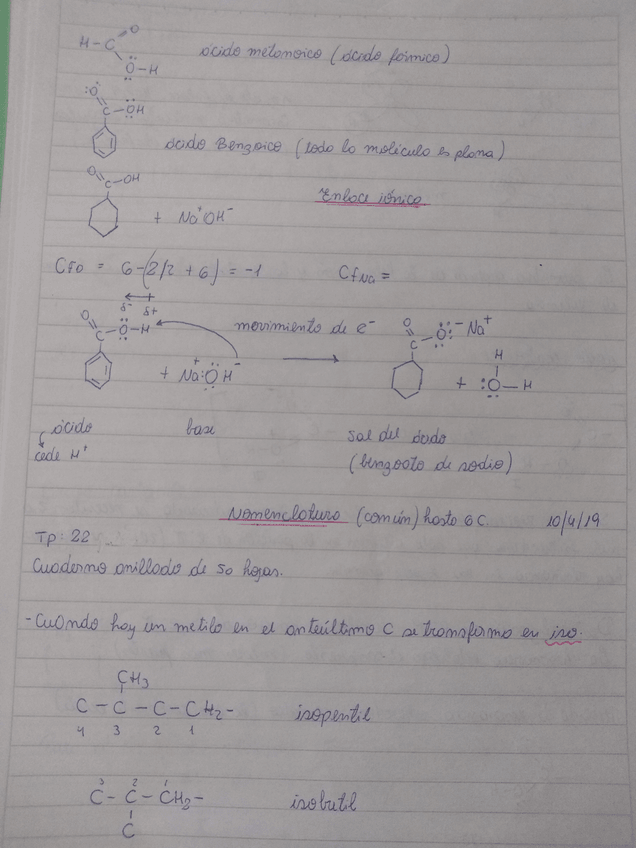 H-C=O
O-H
ácido metanoico (ácido fórmico)
:O:
C-OH
ácido Benzoico (toda la molécula es plana)
O
C-OH
Enlace iónico
+ Na⁺OH⁻
CfO = 6-(2/2 + 6) = -1 Cf Na =
δ- δ+
O
C-O-H
movimiento de e⁻
O
C-O:⁻ Na⁺
+ Na⁺:OH⁻
H
+ :O-H
ácido base sal del ácido
cede H⁺ (benzoato de sodio)
Nomenclatura (común) hasta 6C. 10/4/19
TP: 22
Cuaderno anillado de 50 hojas.
- Cuando hay un metilo en el anteúltimo C se transforma en iso.
CH3
C - C - C - CH2 - isopentil
4 3 2 1
3 2 1
C - C - CH2 - isobutil
C